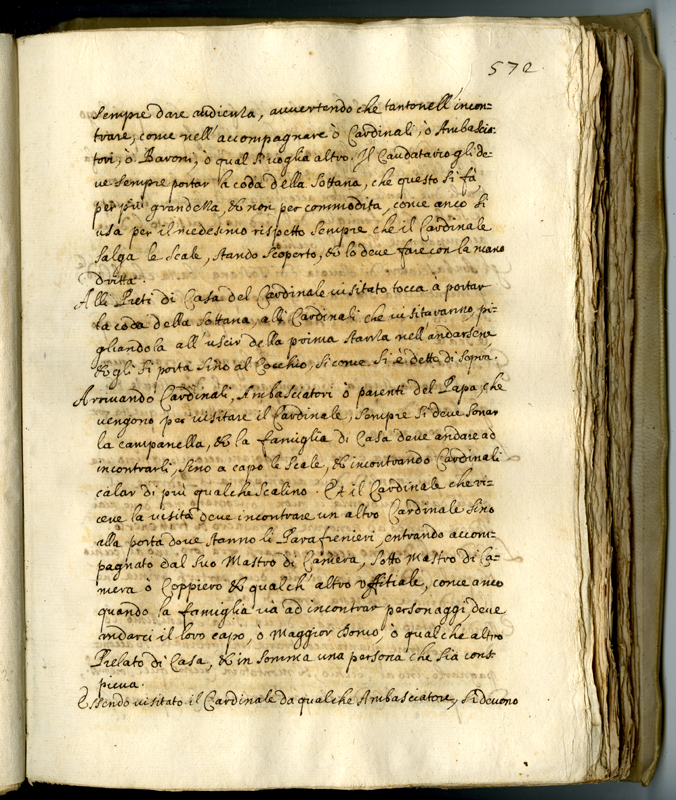 572
sempre dare audienza, avvertendo che tanto nell'incon-
trare, come nell'accompagnare ò Cardinali, ò Ambascia-
tori, ò Baroni, ò qual si voglia altro. Il Caudatario gli de-
ve sempre portar la coda della sottana, che questo si fà
per più grandezza, & non per commodita, come anco si
usa per il medesimo rispetto sempre che il Cardinale
salga le scale, stando scoperto, & lo deve fare con la mano
dritta.
Alli Preti di Casa del Cardinale visitato tocca à portar
la coda della sottana, alli Cardinali che visitavanno, pi-
gliandola all'uscir della prima stanza nell'andarsene
& gli si porta sino al Cocchio, si come si è detto di sopra.
Arrivando Cardinali, Ambasciatori ò parenti del Papa, che
vengono per visitare il Cardinale, sempre si deve sonar
la campanella, & la famiglia di Casa deve andare ad
incontrarli, sino a capo le scale, & incontrando Cardinali
calar di più qualche scalino. Et il Cardinale che ri-
ceve la visita deve incontrare un altro Cardinale sino
alla porta dove stanno li Parafrenieri, entrando accom-
pagnato dal suo Mastro di Camera, sotto Mastro di Ca-
mera ò Coppiero & qualch'altro offitiale, come anco
quando la famiglia và ad incontrar personaggi, deve
andarci il loro capo, ò Maggior Domo, ò qualche altro
Prelato di Casa, & in somma una persona che sia cons-
picua.
Essendo visitato il Cardinale da qualche Ambasciatore, si devono